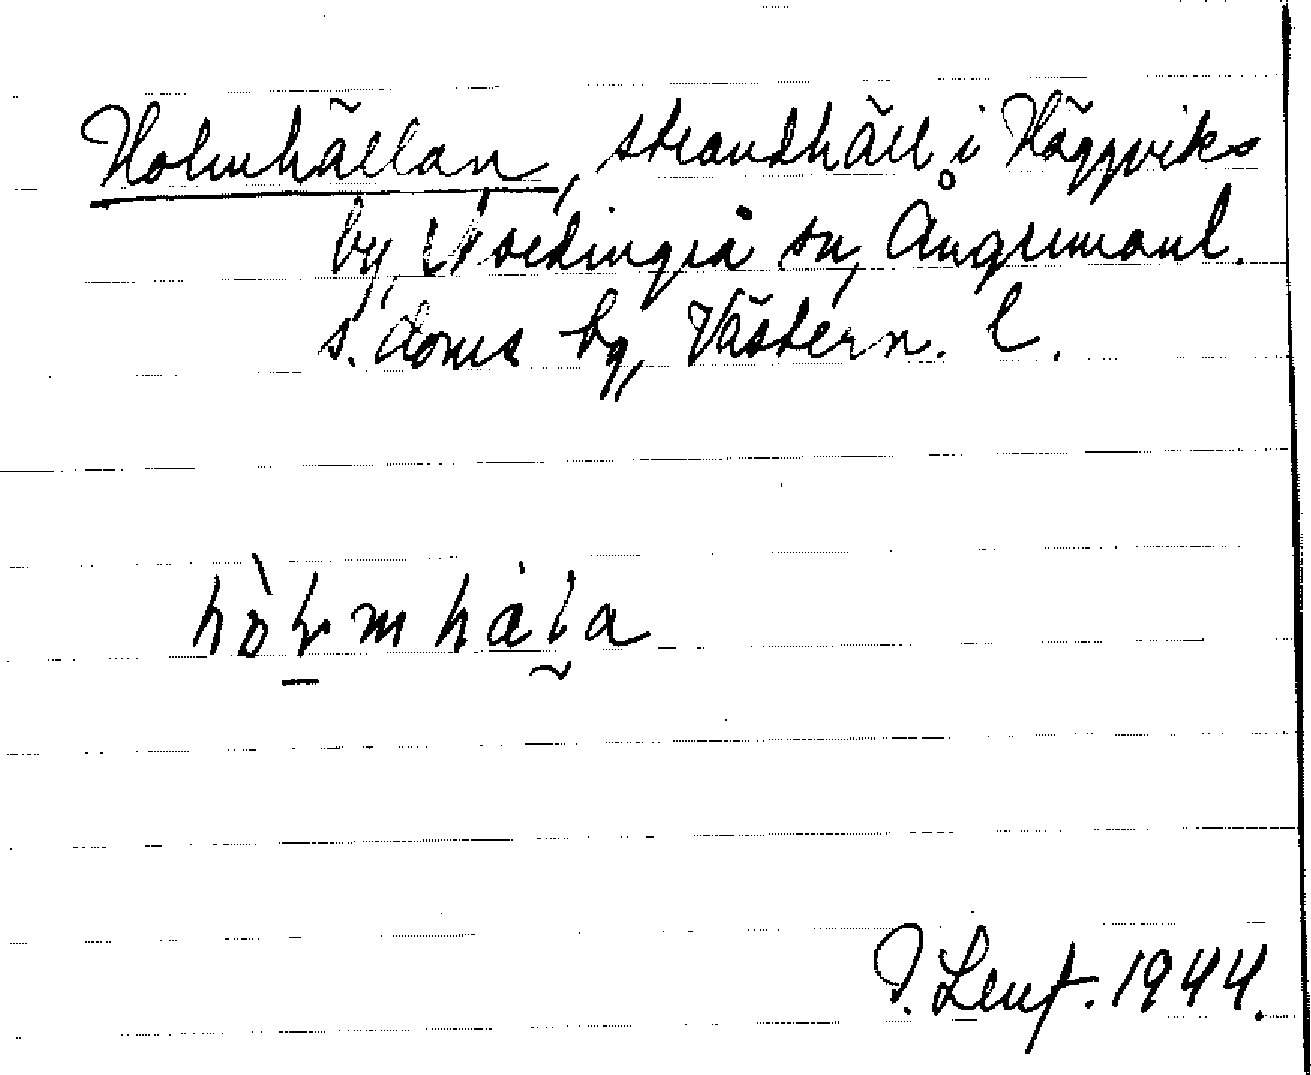 Holmhällan, strandhäll i Häggviks
by, Nordingrå sn, Ångermanl.
s. doms bg, Västern. l.
P. Lenf. 1944.